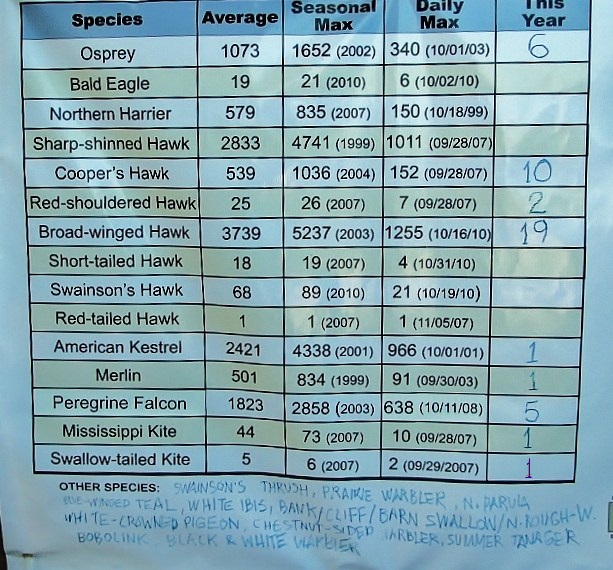 Species Average Seasonal Max Daily Max This Year
Osprey 1073 1652 (2002) 340 (10/01/03) 6
Bald Eagle 19 21 (2010) 6 (10/02/10)
Northern Harrier 579 835 (2007) 150 (10/18/99)
Sharp-shinned Hawk 2833 4741 (1999) 1011 (09/28/07)
Cooper's Hawk 539 1036 (2004) 152 (09/28/07) 10
Red-shouldered Hawk 25 26 (2007) 7 (09/28/07) 2
Broad-winged Hawk 3739 5237 (2003) 1255 (10/16/10) 19
Short-tailed Hawk 18 19 (2007) 4 (10/31/10)
Swainson's Hawk 68 89 (2010) 21 (10/19/10)
Red-tailed Hawk 1 1 (2007) 1 (11/05/07)
American Kestrel 2421 4338 (2001) 966 (10/01/01) 1
Merlin 501 834 (1999) 91 (09/30/03) 1
Peregrine Falcon 1823 2858 (2003) 638 (10/11/08) 5
Mississippi Kite 44 73 (2007) 10 (09/28/07) 1
Swallow-tailed Kite 5 6 (2007) 2 (09/29/2007) 1
OTHER SPECIES: SWAINSON'S THRUSH, PRAIRIE WARBLER, N. PARULA
BLUE-WINGED TEAL, WHITE IBIS, BANK/CLIFF/BARN SWALLOW/N. ROUGH-W.
WHITE-CROWNED PIGEON, CHESTNUT-SIDED WARBLER, SUMMER TANAGER
BOBOLINK, BLACK & WHITE WARBLER